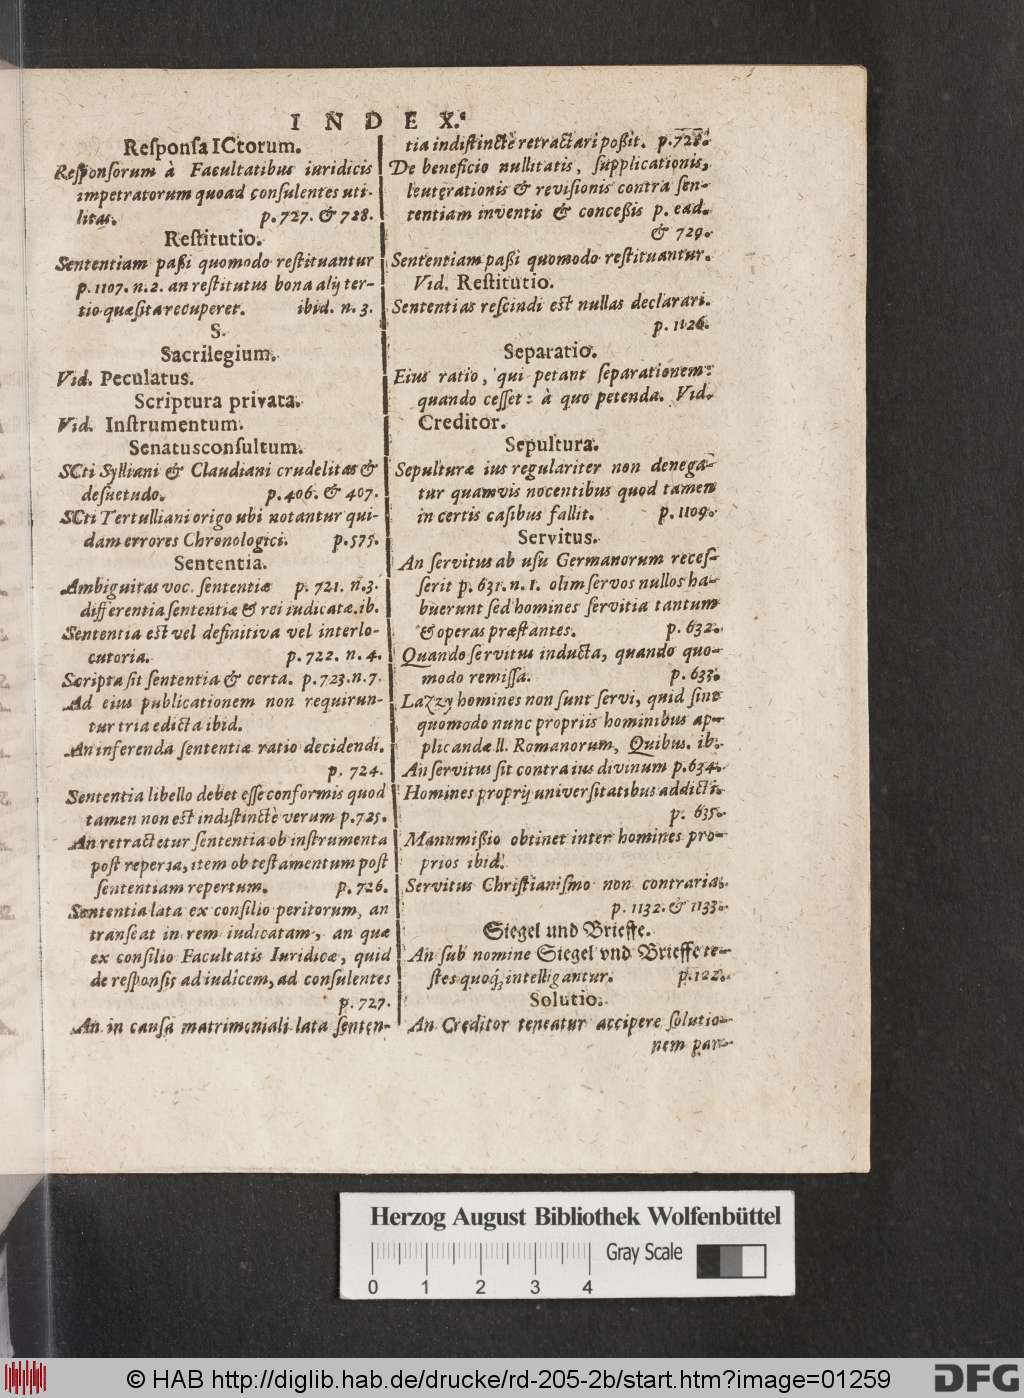 INDEX.
Reſponſa ICtorum.
Reſponſorum à Facultatibus iuridicis
impetratorum quoad conſulentes uti-
litas. p. 727. & 728.
Reſtitutio.
Sententiam paßi quomodo reſtituantur
p. 1107. n. 2. an reſtitutus bona alij ter-
tio quæſita recuperet. ibid. n. 3.
S.
Sacrilegium.
Vid. Peculatus.
Scriptura privata.
Vid. Inſtrumentum.
Senatusconſultum.
SCti Sylliani & Claudiani crudelitas &
deſuetudo. p. 406. & 407.
SCti Tertulliani origo ubi notantur qui-
dam errores Chronologici. p. 575.
Sententia.
Ambiguitas voc. ſententiæ p. 721. n. 3.
differentia ſententiæ & rei iudicatæ. ib.
Sententia eſt vel definitiva vel interlo-
cutoria. p. 722. n. 4.
Scripta ſit ſententia & certa. p. 723. n. 7.
Ad eius publicationem non requirun-
tur tria edicta ibid.
An inferenda ſententiæ ratio decidendi.
p. 724.
Sententia libello debet eſſe conformis quod
tamen non eſt indiſtinctè verum p. 725.
An retractetur ſententia ob inſtrumenta
poſt reperta, item ob teſtamentum poſt
ſententiam repertum. p. 726.
Sententia lata ex conſilio peritorum, an
tranſeat in rem iudicatam, an quæ
ex conſilio Facultatis Iuridicæ, quid
de reſponſis ad iudicem, ad conſulentes
p. 727.
An in cauſa matrimoniali lata ſenten-
tia indiſtinctè retractari poßit. p. 728.
De beneficio nullitatis, ſupplicationis,
leuterationis & reviſionis contra ſen-
tentiam inventis & conceßis p. ead.
& 729.
Sententiam paßi quomodo reſtituantur.
Vid. Reſtitutio.
Sententias reſcindi eſt nullas declarari.
p. 1126.
Separatio.
Eius ratio, qui petant ſeparationem:
quando ceſſet: à quo petenda. Vid.
Creditor.
Sepultura.
Sepulturæ ius regulariter non denega-
tur quamvis nocentibus quod tamen
in certis caſibus fallit. p. 1109.
Servitus.
An ſervitus ab uſu Germanorum receſ-
ſerit p. 631. n. 1. olim ſervos nullos ha-
buerunt ſed homines ſervitia tantum
& operas præſtantes. p. 632.
Quando ſervitus inducta, quando quo-
modo remiſſa. p. 633.
Lazzy homines non ſunt ſervi, quid ſint
quomodo nunc propriis hominibus ap-
plicandæ ll. Romanorum, Quibus. ib.
An ſervitus ſit contra ius divinum p. 634.
Homines proprij univerſitatibus addicti.
p. 635.
Manumißio obtinet inter homines pro-
prios ibid.
Servitus Chriſtianiſmo non contraria.
p. 1132. & 1133.
Siegel und Brieffe.
An ſub nomine Siegel vnd Brieffe te-
ſtes quoq; intelligantur. p. 122.
Solutio.
An Creditor teneatur accipere ſolutio-
nem par-
Herzog August Bibliothek Wolfenbüttel
Gray Scale
0 1 2 3 4
© HAB http://diglib.hab.de/drucke/rd-205-2b/start.htm?image=01259
DFG